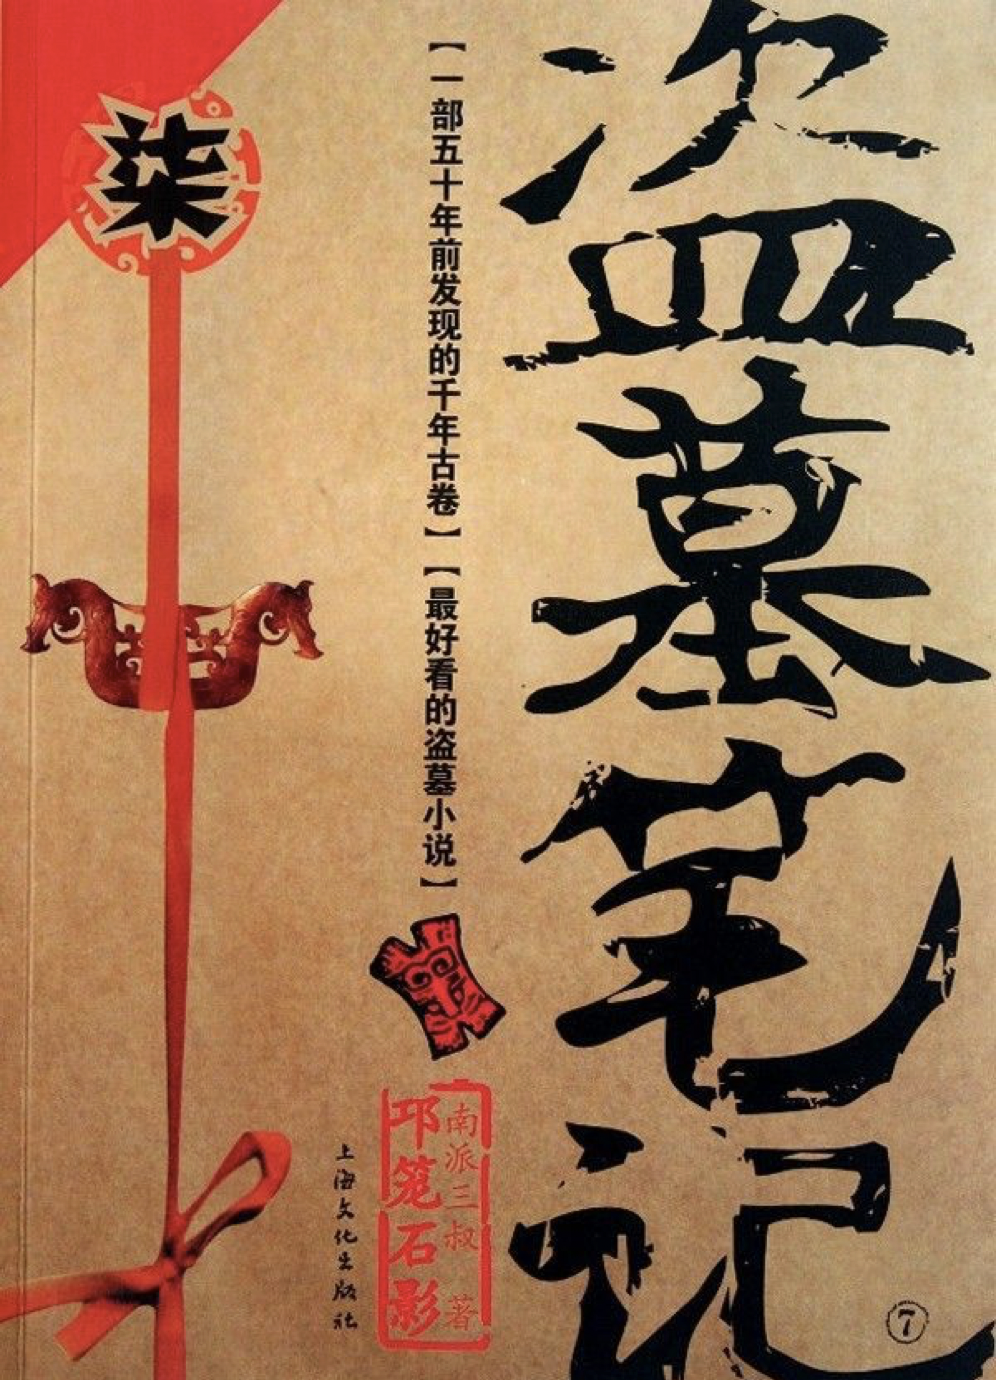 盗墓笔记
7
【一部五十年前发现的千年古卷】【最好看的盗墓小说】
南派三叔 著
邛笼石影
上海文化出版社
柒